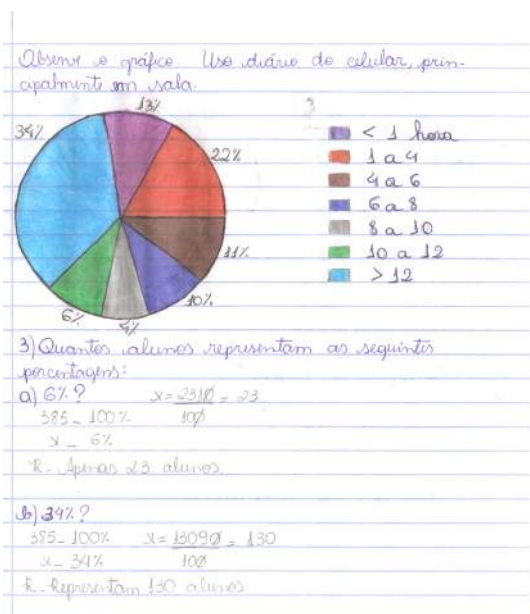 Observe o gráfico Uso diário do celular, prin-
cipalmente em sala.
13%
34%
22%
11%
10%
4%
6%
< 1 hora
1 a 4
4 a 6
6 a 8
8 a 10
10 a 12
> 12
3) Quantos alunos representam as seguintes
porcentagens:
a) 6%? x = 2310 = 23
385 - 100% 100
x - 6%
R - Apenas 23 alunos.
b) 34%?
385 - 100% x = 13090 = 130
x - 34% 100
R - Representam 130 alunos.